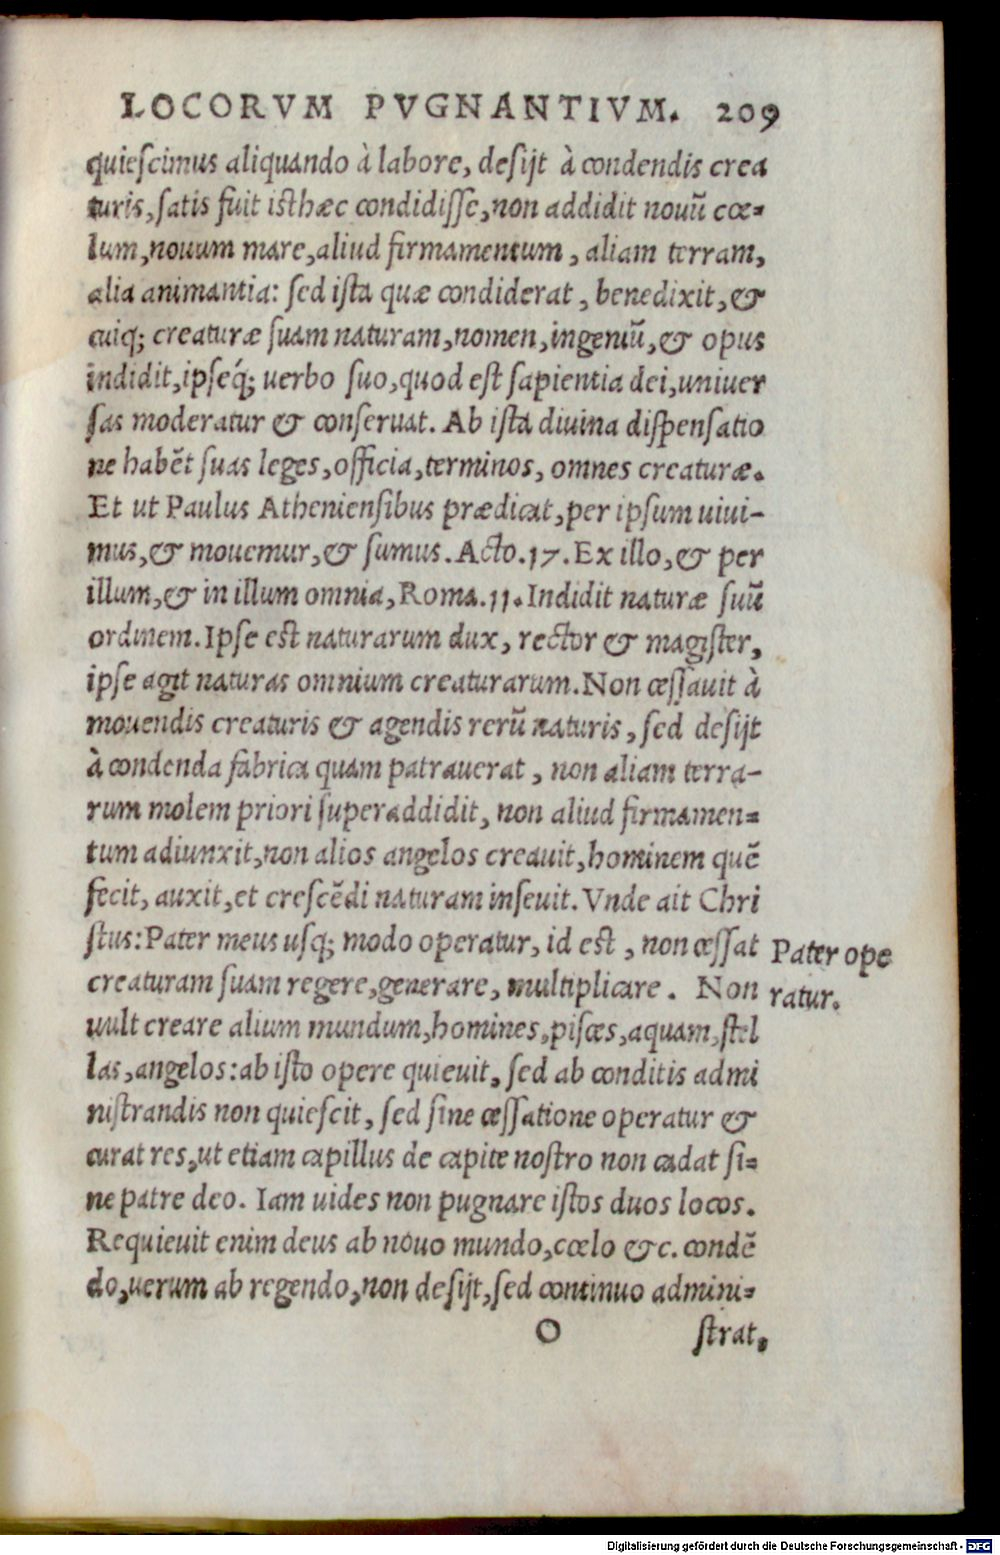 LOCORVM PVGNANTIVM. 209
quiescimus aliquando à labore, desijt à condendis crea
turis, satis fuit isthæc condidisse, non addidit nouũ cœ=
lum, nouum mare, aliud firmamentum, aliam terram,
alia animantia: sed ista quæ condiderat, benedixit, &
cuiq; creaturæ suam naturam, nomen, ingeniũ, & opus
indidit, ipséq́; uerbo suo, quod est sapientia dei, uniuer
sas moderatur & conseruat. Ab ista diuina dispensatio
ne habẽt suas leges, officia, terminos, omnes creaturæ.
Et ut Paulus Atheniensibus prædicat, per ipsum uiui-
mus, & mouemur, & sumus. Acto. 17. Ex illo, & per
illum, & in illum omnia, Roma. 11. Indidit naturæ suũ
ordinem. Ipse est naturarum dux, rector & magister,
ipse agit naturas omnium creaturarum. Non cessauit à
mouendis creaturis & agendis rerũ naturis, sed desijt
à condenda fabrica quam patrauerat, non aliam terra-
rum molem priori superaddidit, non aliud firmamen=
tum adiunxit, non alios angelos creauit, hominem quẽ
fecit, auxit, et crescẽdi naturam inseuit. Vnde ait Chri
stus: Pater meus usq; modo operatur, id est, non cessat
creaturam suam regere, generare, multiplicare. Non
uult creare alium mundum, homines, pisces, aquam, stel
las, angelos: ab isto opere quieuit, sed ab conditis admi
nistrandis non quiescit, sed sine cessatione operatur &
curat res, ut etiam capillus de capite nostro non cadat si=
ne patre deo. Iam uides non pugnare istos duos locos.
Requieuit enim deus ab nouo mundo, cœlo &c. condẽ
do, uerum ab regendo, non desijt, sed continuo admini=
O strat.
Pater ope
ratur.
Digitalisierung gefördert durch die Deutsche Forschungsgemeinschaft - DFG